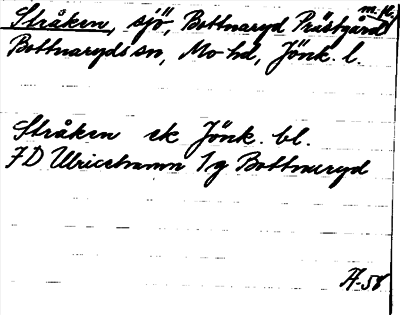 Stråken, sjö, Bottnaryd Prästgård m.fl.
Bottnaryds sn, Mo hd, Jönk. l.
Stråken ek Jönk. bl.
7D Ulricehamn 1g Bottnaryd
Å-58